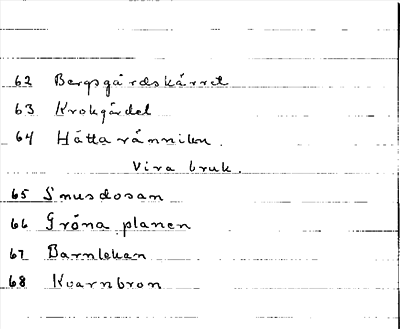 62 Bergsgårdskärret
63 Krokgärdet
64 Håtta
Vira bruk.
65 Snusdosan
66 Gröna planen
67 Barnlekan
68 Kvarnbron